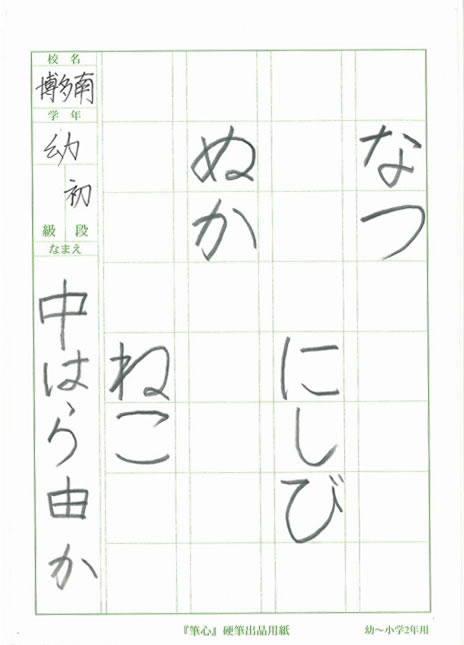 なつ
にしび
ぬか
ねこ
校名
博多南
学年
幼
初
級段
なまえ
中はら由か
『筆心』硬筆出品用紙
幼～小学2年用